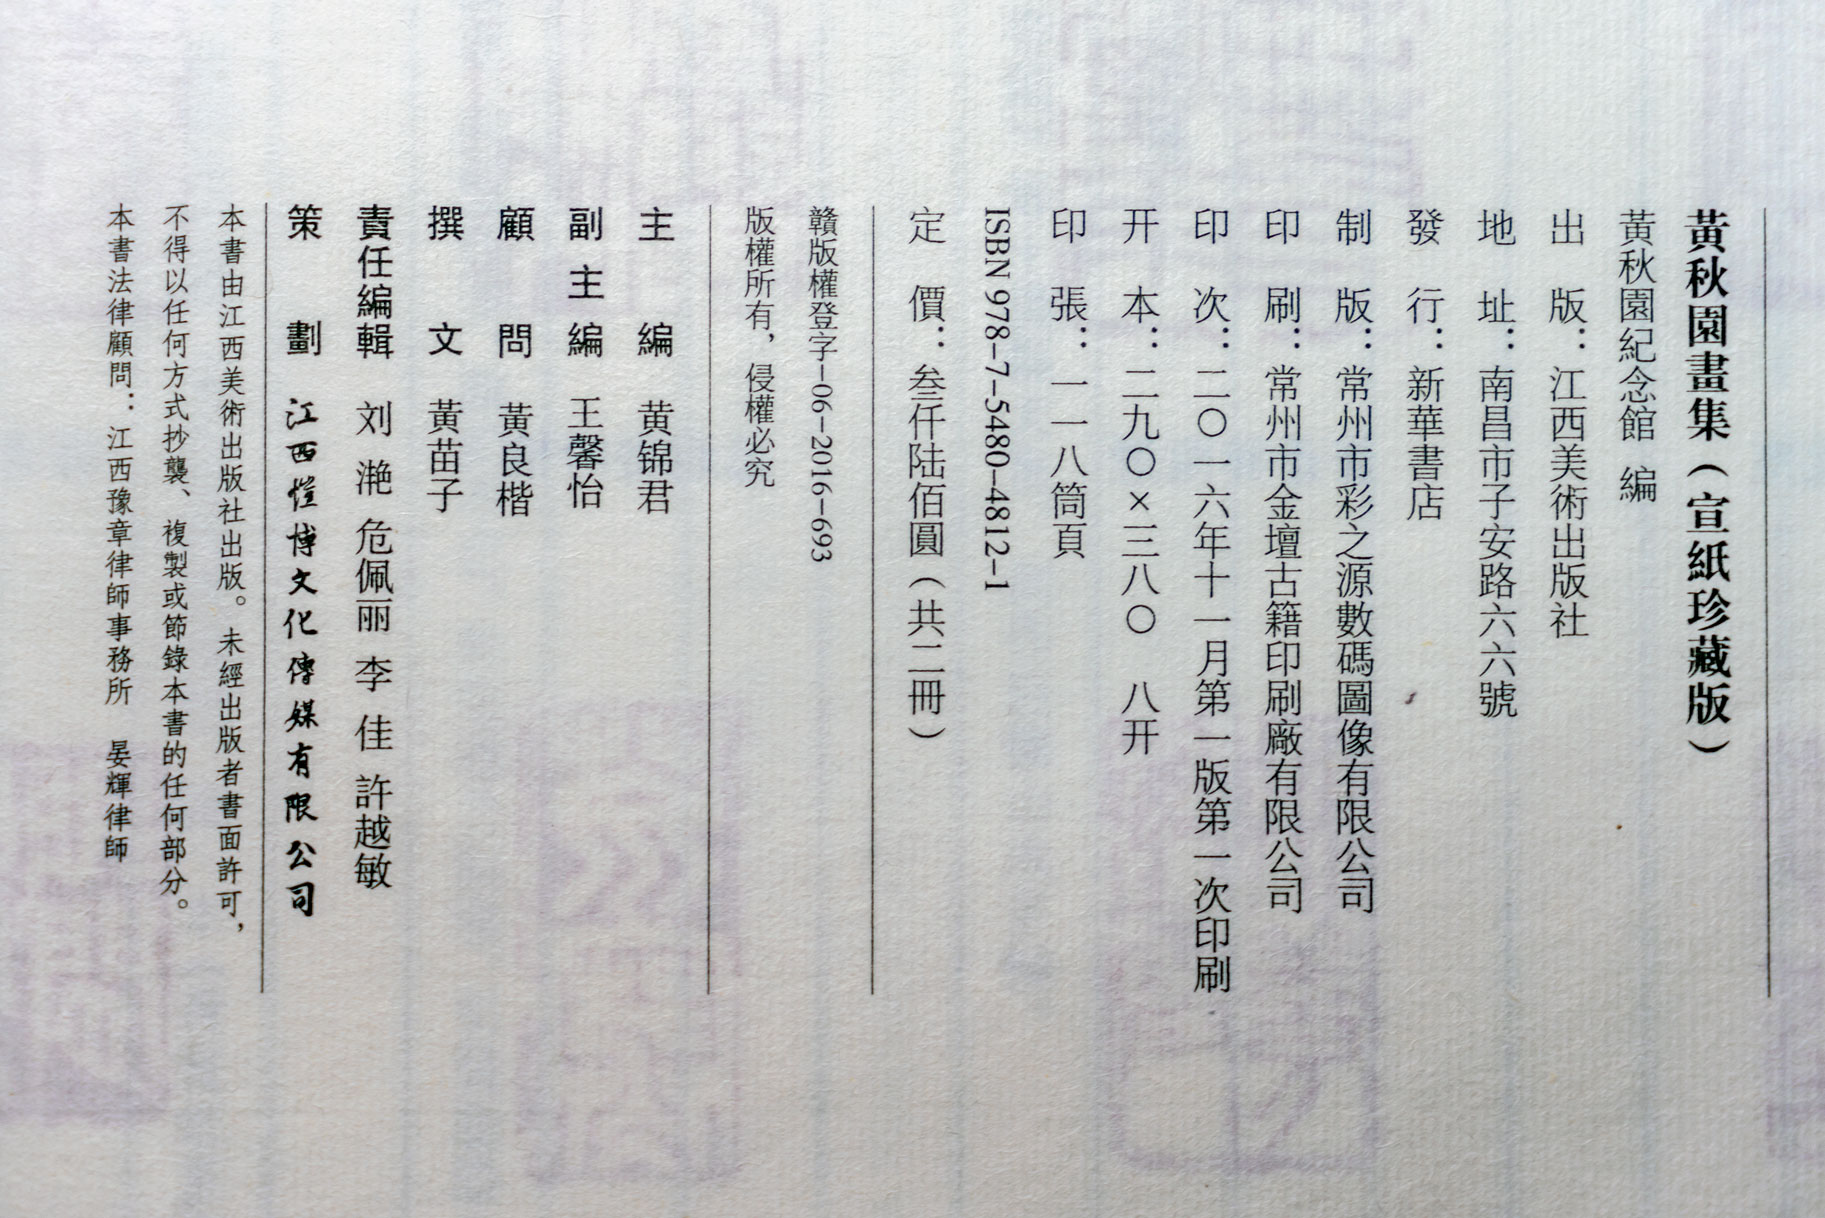 黃秋園畫集（宣紙珍藏版）
黃秋園紀念館 編
出 版：江西美術出版社
地 址：南昌市子安路六六號
發 行：新華書店
制 版：常州市彩之源數碼圖像有限公司
印 刷：常州市金壇古籍印刷廠有限公司
印 次：二〇一六年十一月第一版第一次印刷
开 本：二九〇×三八〇 八开
印 張：一一八筒頁
ISBN 978-7-5480-4812-1
定 價：叁仟陆佰圓（共二冊）
贛版權登字-06-2016-693
版權所有，侵權必究
主 編 黄锦君
副主編 王馨怡
顧 問 黃良楷
撰 文 黃苗子
責任編輯 刘 滟 危佩丽 李 佳 許越敏
策 劃 江西愷博文化傳媒有限公司
本書由江西美術出版社出版。未經出版者書面許可，
不得以任何方式抄襲、複製或節錄本書的任何部分。
本書法律顧問：江西豫章律師事務所 晏輝律師